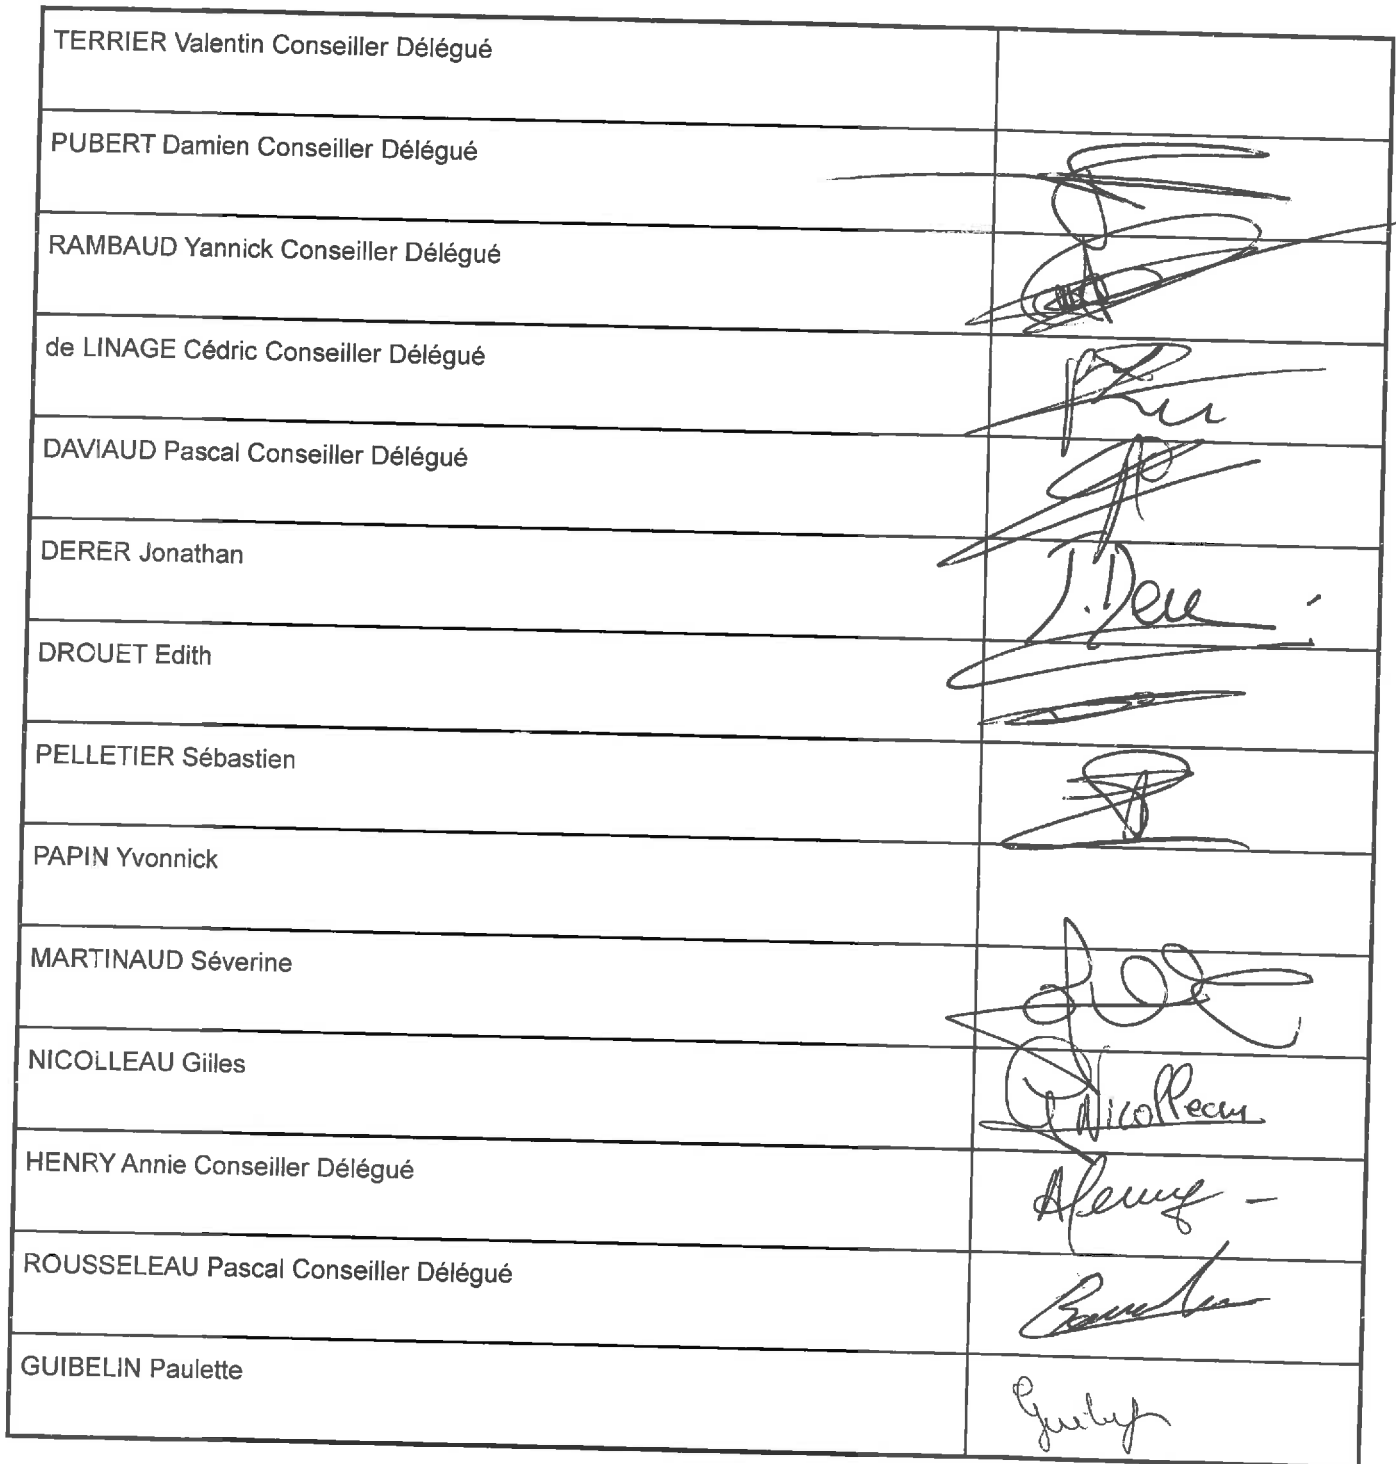 TERRIER Valentin Conseiller Délégué
PUBERT Damien Conseiller Délégué
RAMBAUD Yannick Conseiller Délégué
de LINAGE Cédric Conseiller Délégué
DAVIAUD Pascal Conseiller Délégué
DERER Jonathan
J. Derer
DROUET Edith
PELLETIER Sébastien
PAPIN Yvonnick
MARTINAUD Séverine
NICOLLEAU Gilles
Nicolleau
HENRY Annie Conseiller Délégué
AHenry
ROUSSELEAU Pascal Conseiller Délégué
GUIBELIN Paulette